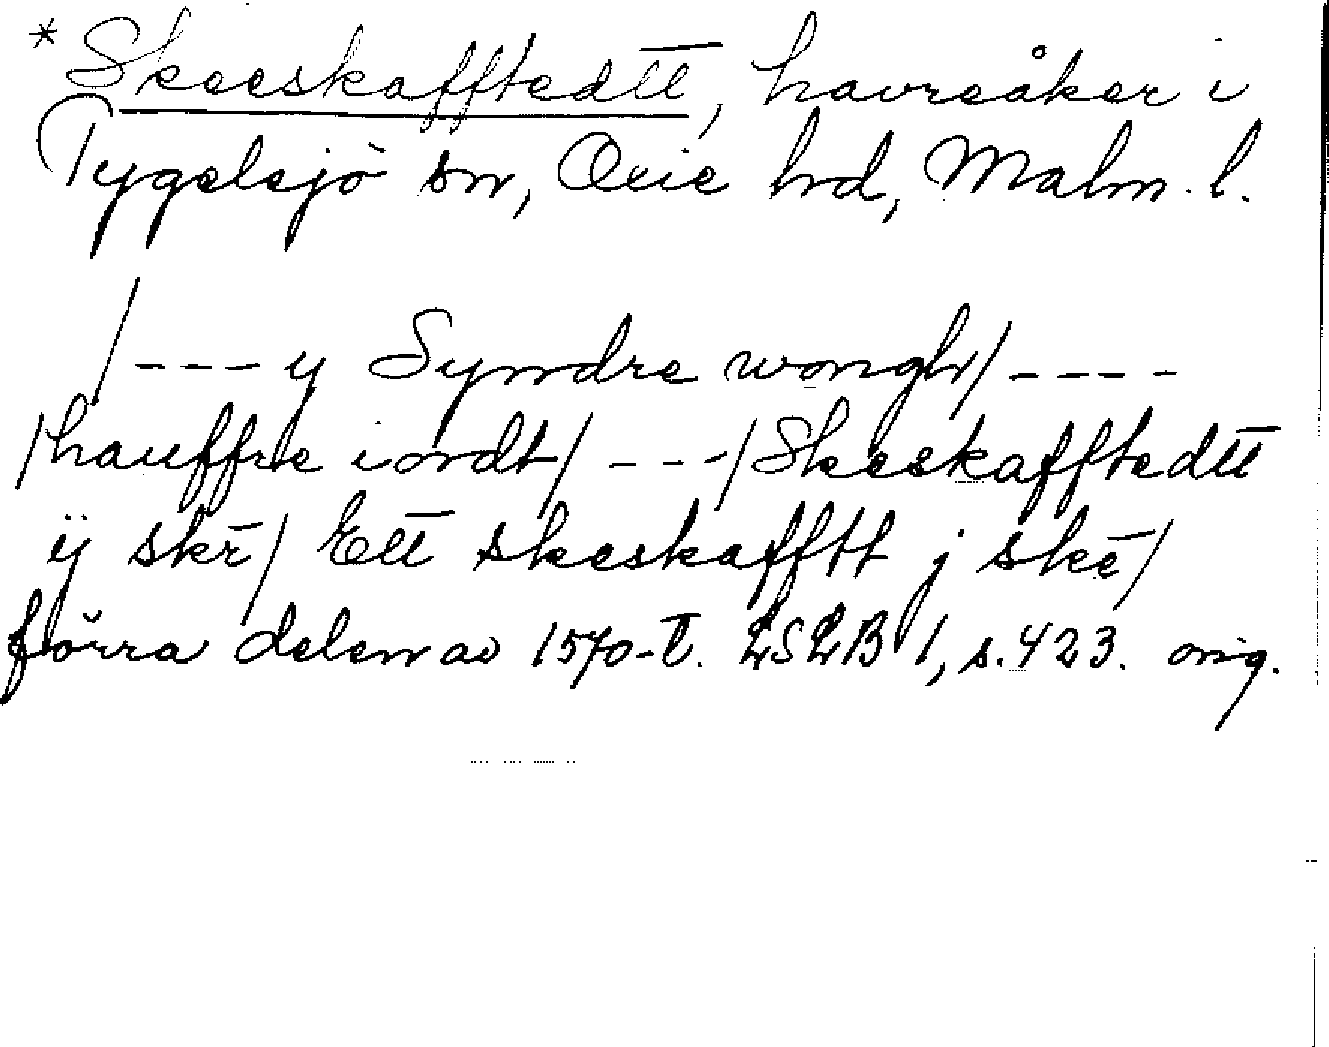 *Skeeskafftedtt, havreåker i
Tygelsjö sn, Oxie hrd, Malm. l.
/---y Syndre wongh/----
/hauffre iordt/---/Skeeskafftedtt
ÿ skē/ Ett skeskafftt j skē/
förra delen av 1570-t. LSLB 1, s. 423. orig.